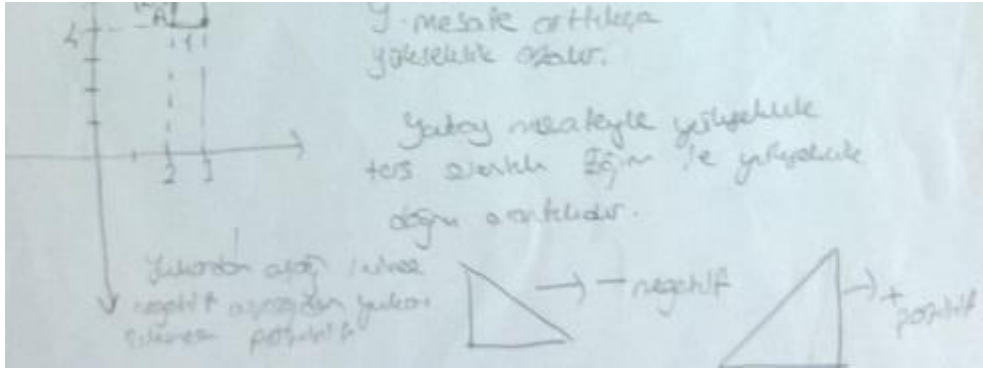 A
4
1
2 3
y. mesafe arttıkça
yükseklik azalır.
Yatay mesafeyle yükseklik
ters orantılı Eğim ile yükseklik
doğru orantılıdır.
Yukarıdan aşağı inince
negatif aşağıdan yukarı
çıkınca pozitif
→ - negatif
→ + pozitif